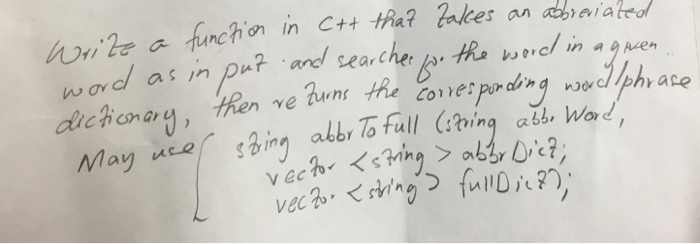 Write a function in C++ that takes an abbreviated
word as in put and searches for the word in a given
dictionary, then re turns the corresponding word/phrase
May use string abbr To Full (string abbr Word,
vector <string> abbr Dict;
vector <string> fullDict);